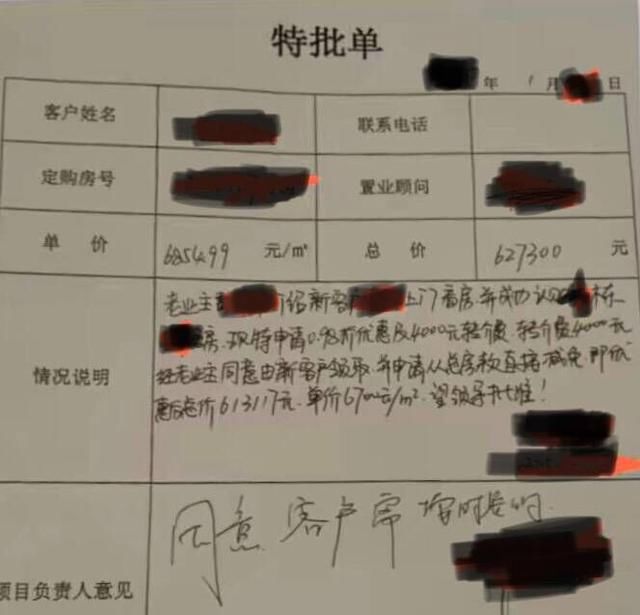 特批单
年 1月 日
客户姓名 联系电话
定购房号 置业顾问
单价 6854.99 元/m² 总价 627300 元
老业主 介绍新客户 上门看房.并成功认购 栋
房.现特申请0.98折优惠及4000元轻介费.轻介费4000元
经老业主同意由新客户领取.并申请从总房款直接减免.即优
情况说明
惠后总价613117元.单价6700元/m².望领导批准!
同意 客户需按时签约
项目负责人意见